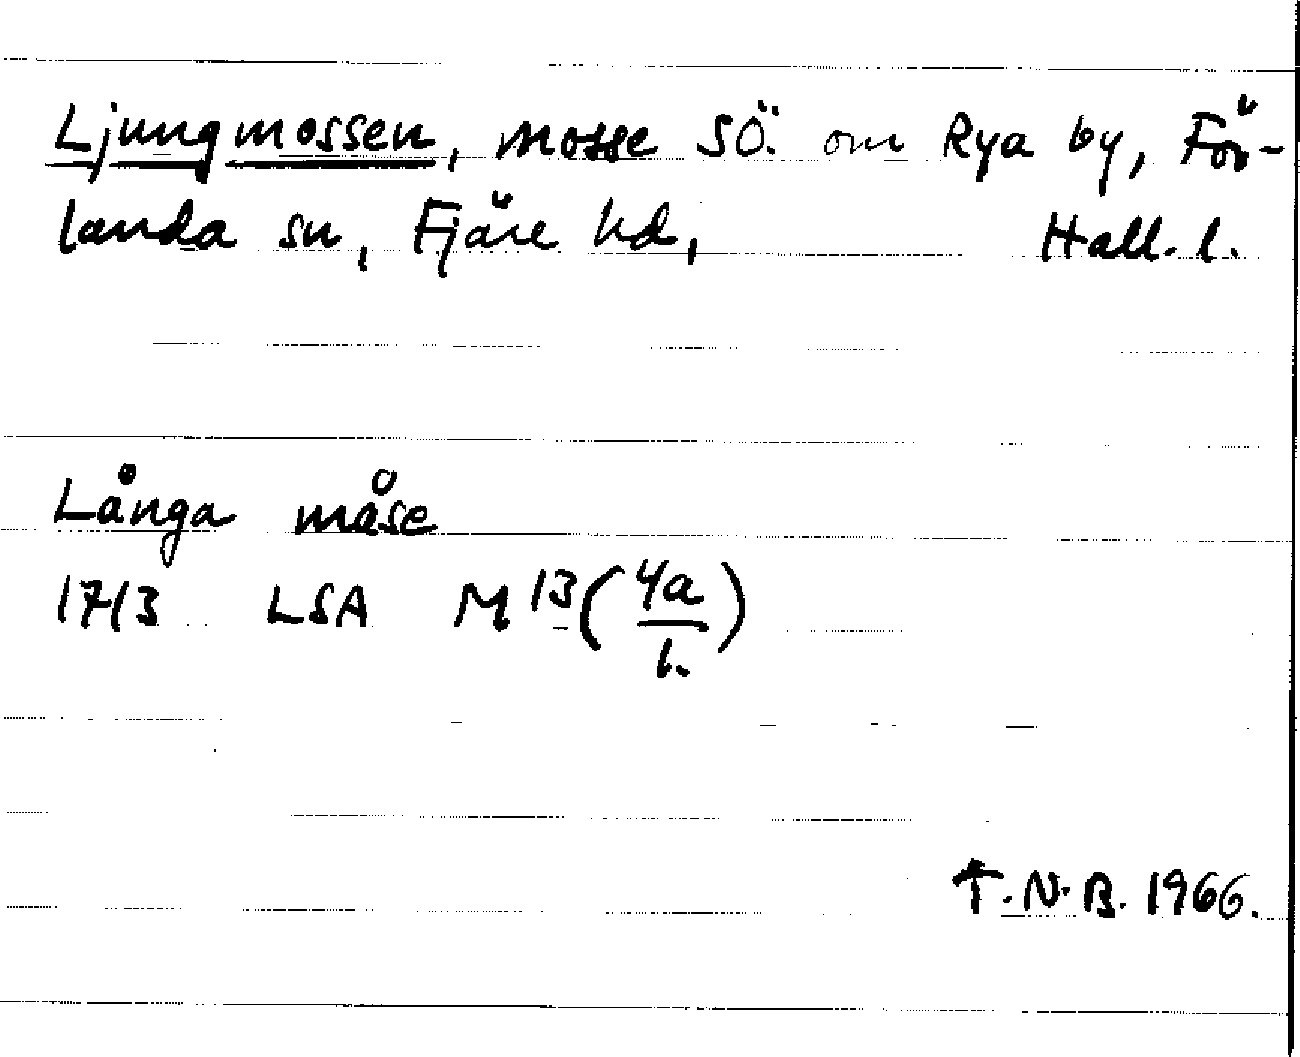 Ljungmossen, mosse SÖ. om Rya by, För-
landa sn, Fjäre hd, Hall. l.
Långa måse
1713 LSA M 13 (4a/1.)
T.N.B. 1966.